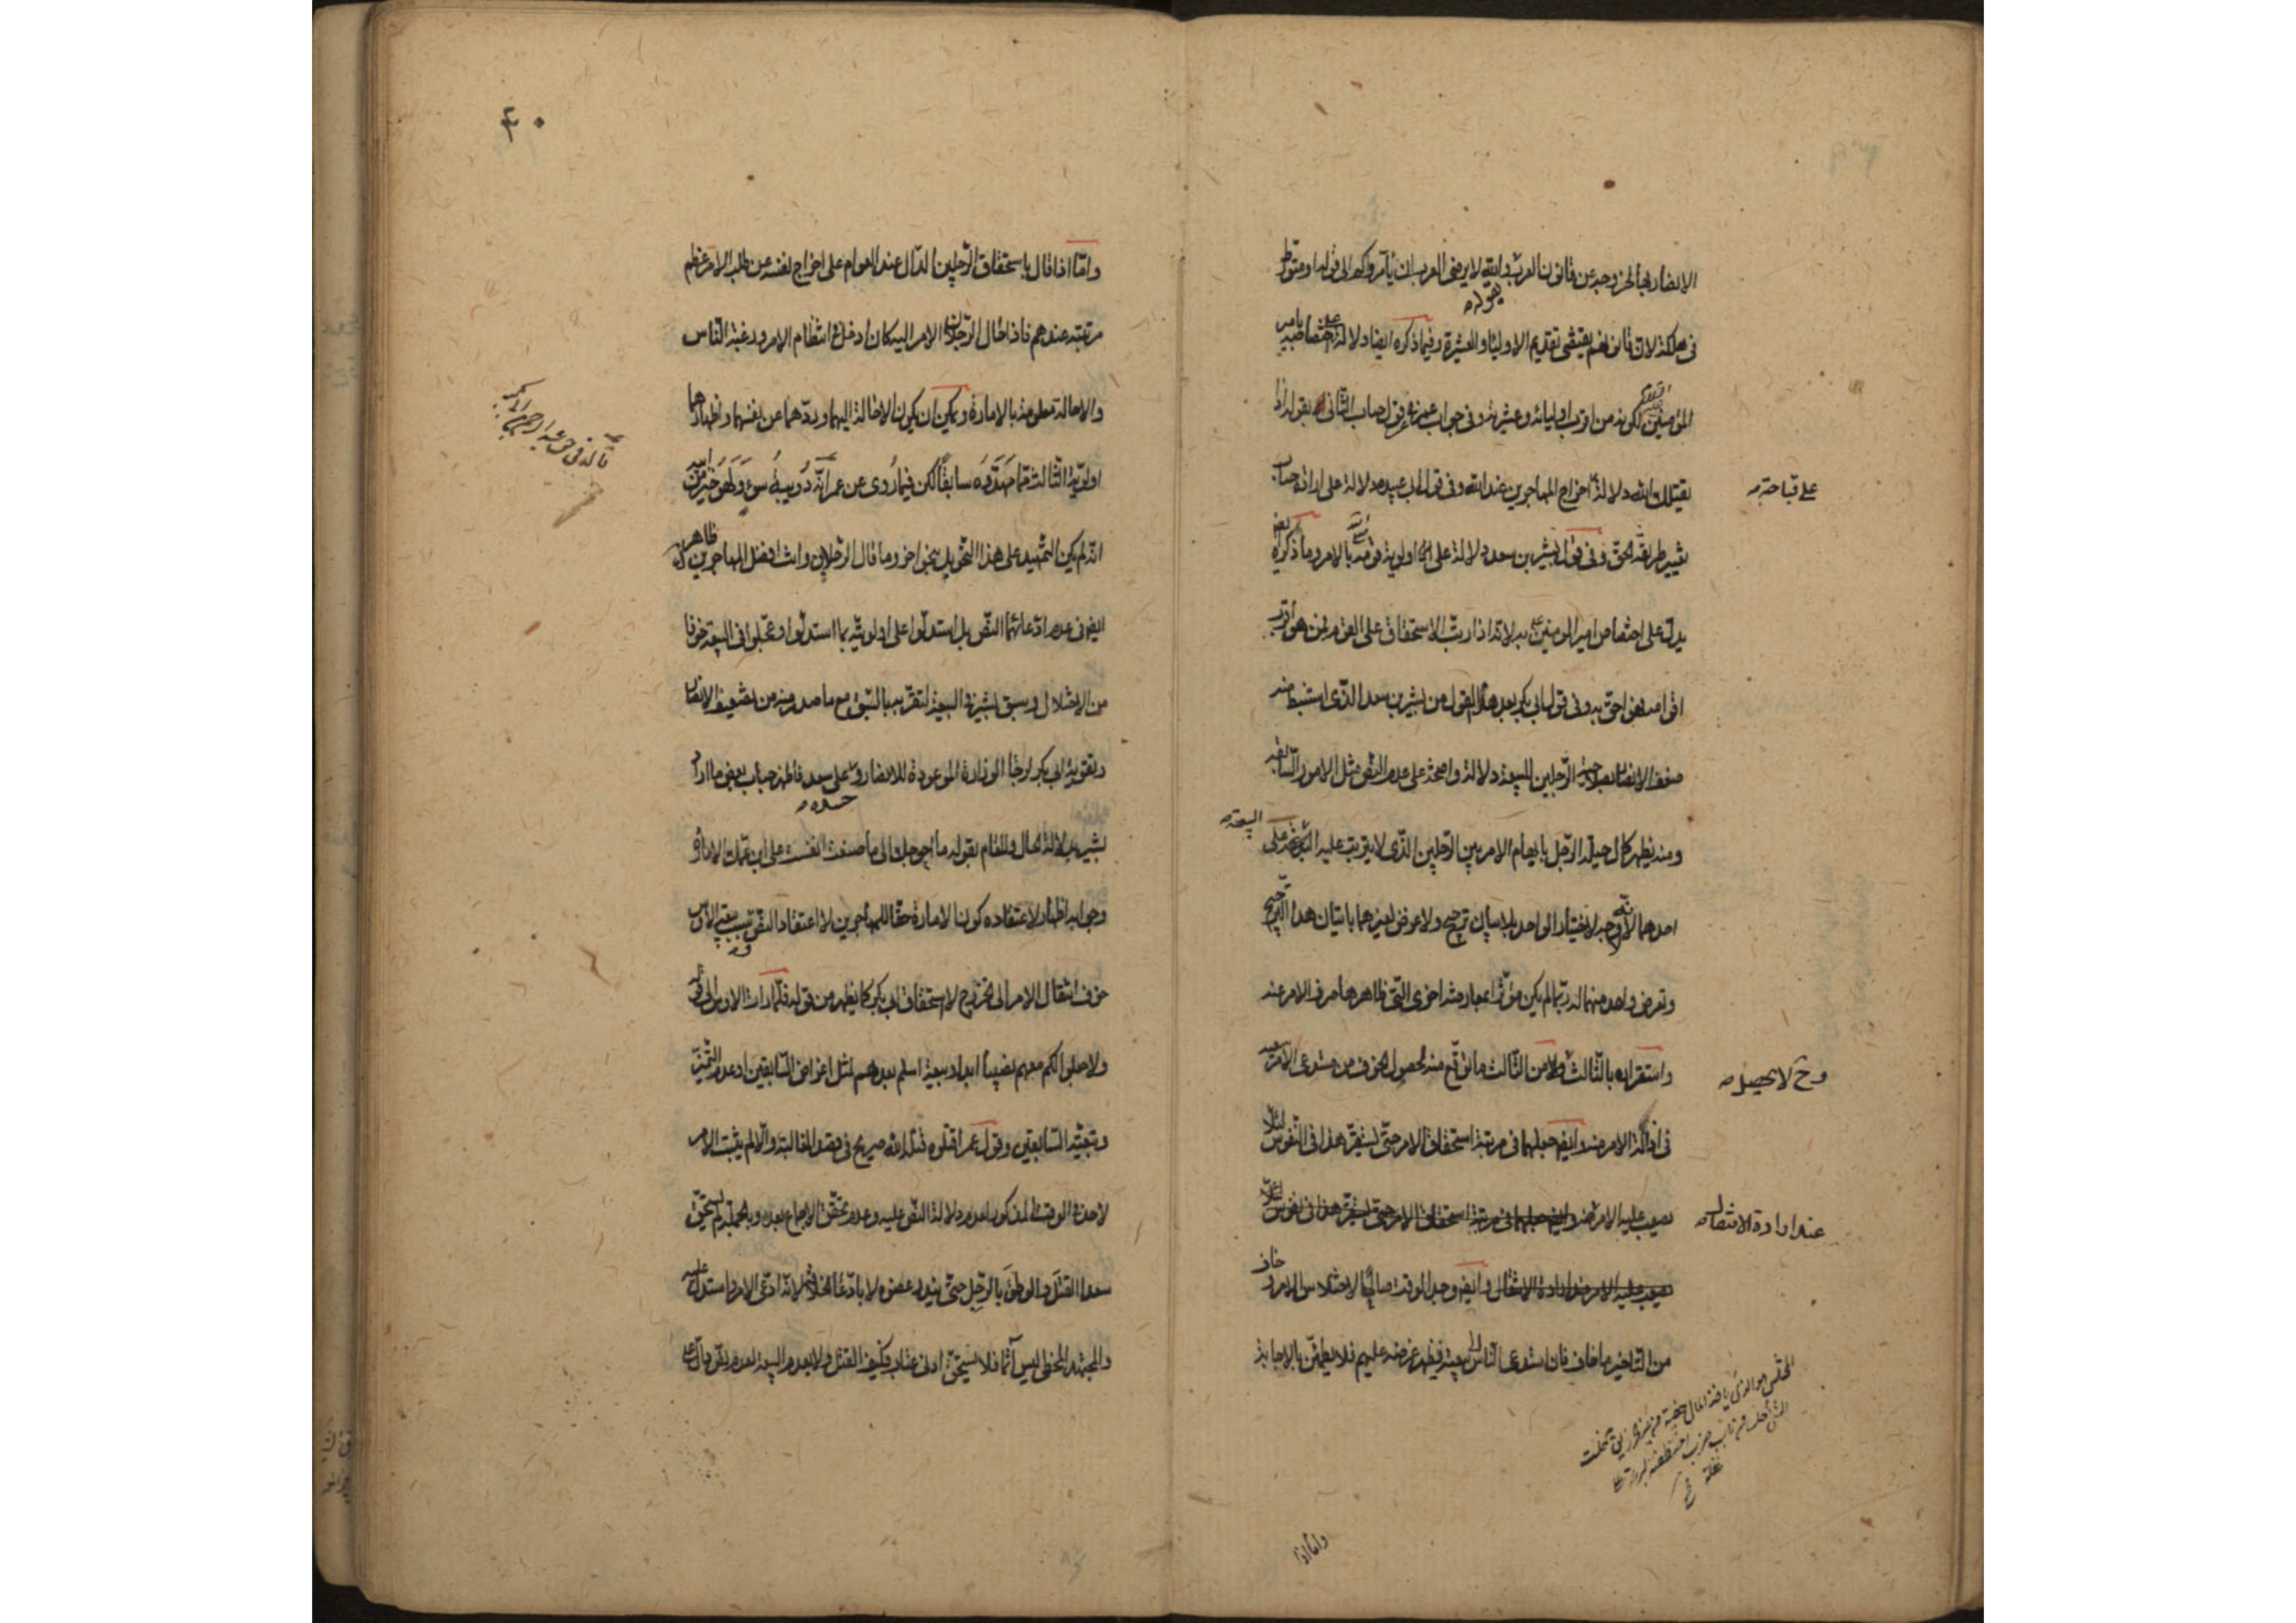 الانصار بها لخروجه عن قانون العرب وانه لا يرضى العرب ان يأمروكم الى قوله او متورط
بقوله
في هلكة لان قانونهم يقتضى تقديم الاولياء والعشيرة وفيما ذكره ايضا دلالة على اختصاص امير
المؤمنين لكونه من اقرب اوليائه وعشيرته وفي جواب عمر عن قول حباب الثاني بقوله اذا
يقتلك الله دلالة اخراج المهاجرين عند الله وفي قول ابى عبيده دلالة على ارادة حباب
على قباحة
تغيير طريقة الحق وفي قول بشير بن سعد دلالة على اولوية قومه بالامر وما ذكره
يدل على اختصاص امير المؤمنين به لانه اذا رتب الاستحقاق على القوم فمن هو اقرب
القوم فهو احق به وفي قول ابى بكر بعد هذا القول من بشير بن سعد الذى استنبط منه
ضعف الانصار الرجلين للبيعة دلالة واضحة على عدم النص مثل الامور السابقة
البيعة
ومنه يظهر كمال حيلة الرجل بابهام الامر بين الرجلين الذى لا يترتب عليه على
احدهما لانه لا وجه لاختيار الواحد بلا بيان ترجيح ولا عرض لغيرهما باتيان هذا الترجيح
وتعرض واحد منهما له ربما لم يكن مؤثرا بمعارضة اخرى التى ظاهرها صرف الامر عنه
واستقراره بالثالث ولا من الثالث ما توقع منه لحصول الخوف من مستدعى الامر
وح لا يحصل
في ازالة الامر عنه وايضا جعلهما في مرتبة استحقاق الامر حتى يستقر هذا في النفوس لئلا
يصعب عليه الامر
عند ارادة الانتقال
وايضا وجد الوقت صالحا لاختلاس الامر وخاف
من التأخير ما خاف فان استدعى الناس الى بيعته فيظهر غرضه عليهم فلا يطمئن بالاجابة
واما اذا
٤٠
واما اذا قال باستحقاق الرجلين الدال عند العوام على اخراج نفسه عن طلب الامر عظم
مرتبته عندهم فاذا احال الرجلان الامر اليه كان ادخل في انتظام الامر ورغبة الناس
والاحالة معلومة بالامارة ويمكن ان يكون الاحالة اليهما وردهما عن نفسهما واظهارهما
اولوية الثالث مما مهدوه سابقا لكن فيما روى عن عمر انه دويبة سوء ولهو خير من ابيه
قاله في حق عبد الرحمن بن ابى بكر
انه لم يكن التمهيد على هذا التحويل بنحو اخر وما قال الرجلان وانت افضل المهاجرين ظاهر
ايضا في عدم ادعائهما النص بل استدلوا على اولويته بما استدلوا وعجلوا في البيعة خوفا
من الاختلال وسبق بشير في البيعة لتقربه بالسبق مع ما صدر منه من تضعيف الانصار
وتقوية ابى بكر لرجاء الوزارة الموعودة للانصار وعلى سعد فاظهر حباب بعض ما اراد
حسده
بشير بدلالة الحال والمقام بقوله ما احوجك الى ما صنعت انفست على ابن عمك الامارة
وجوابه اظهار لاعتقاده كون الامارة حقا للمهاجرين لا اعتقاد النص وسبب بيعة الاوس
خوف انتقال الامر الى الخزرج لا استحقاق ابى بكر كما يظهر من قوله فلما رات الاوس الى قوله
ولا جعلوا لكم معهم نصيبا ابدا وبيعة اسلم بعدهم لمثل اغراض السابقين او عدم التميز
وتبعية السابقين وقول عمر اقتلوه قتله الله صريح في قصد المغالبة والا لم يثبت الامر
لاحد في الوقت المذكور لعدم دلالة النص عليه وعدم تحقق الاجماع بعد وبالجملة لم يستحق
سعد القتل والوطئ بالرجل حتى يندر عضوه لا بادعاء الخلافة لانه ادعى الامر واستدل عليه
والمجتهد المخطى ليس آثما فلا يستحق ادنى عتاب فكيف القتل ولا بعدم البيعة لعدم نص دال على